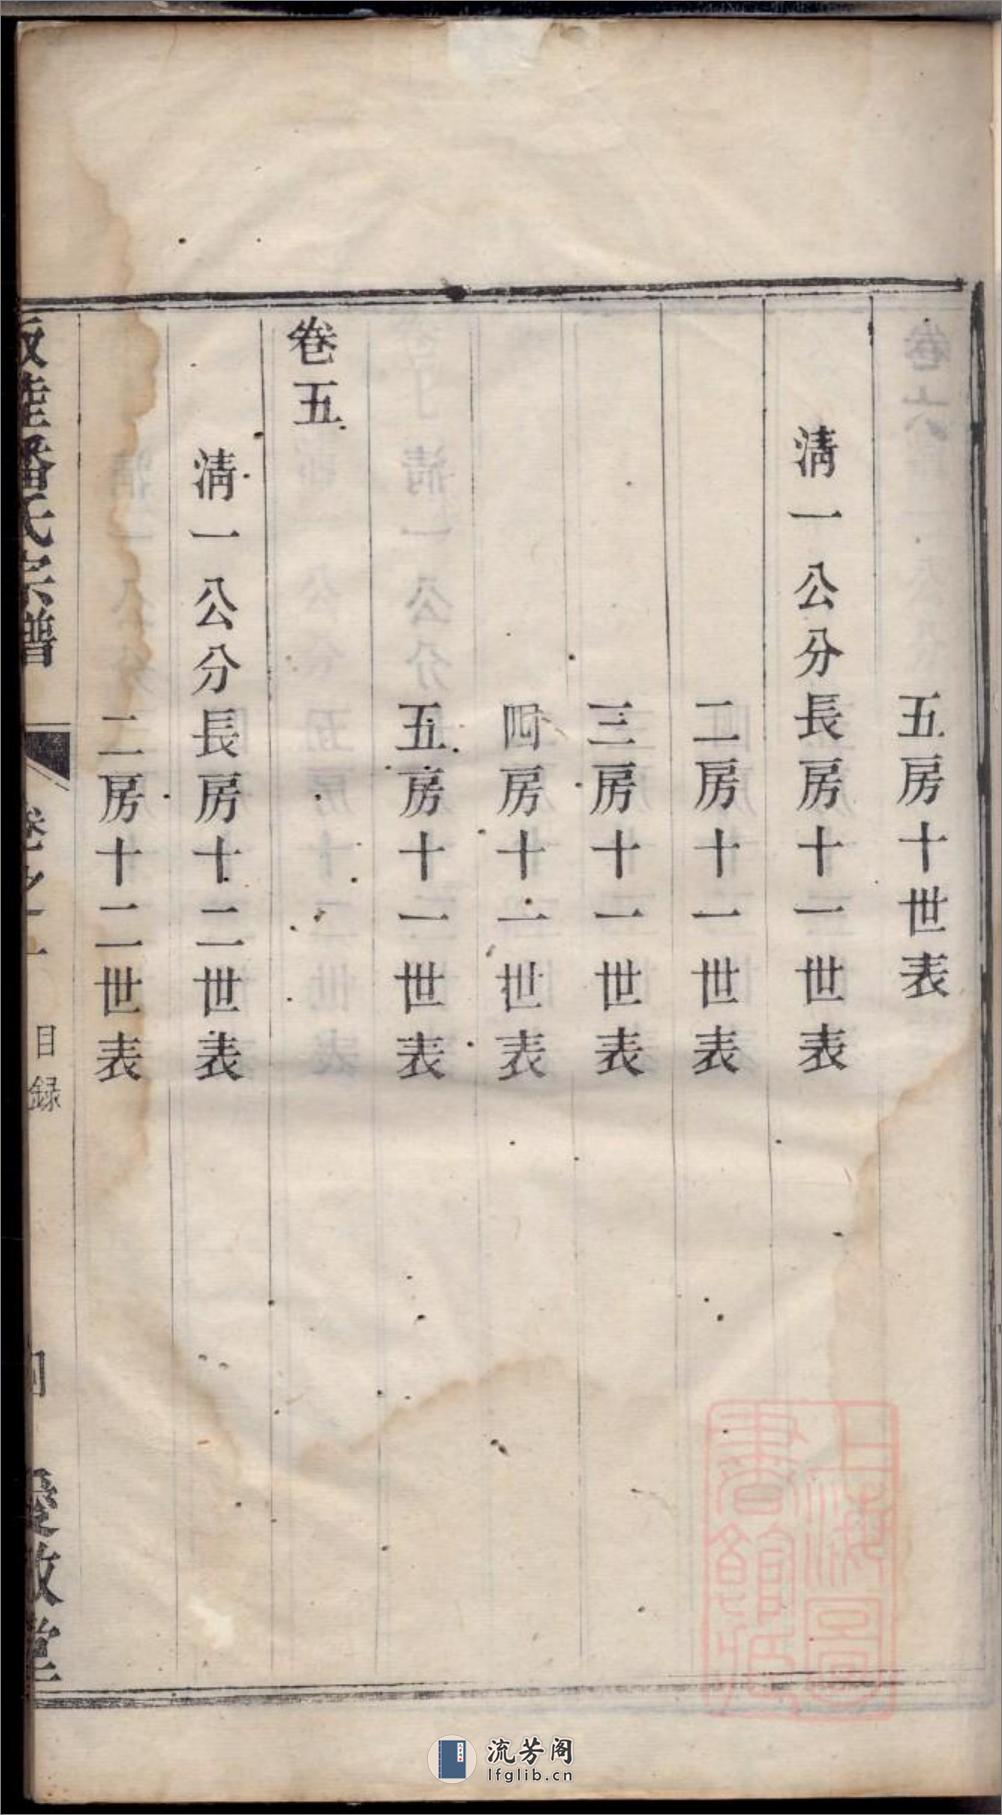 五房十世表
清一公分長房十一世表
二房十一世表
三房十一世表
四房十一世表
五房十一世表
卷五
清一公分長房十二世表
二房十二世表
潘氏宗譜
卷之一
目録
四
愛敬堂
上海圖
書館藏
流芳阁
lfglib.cn